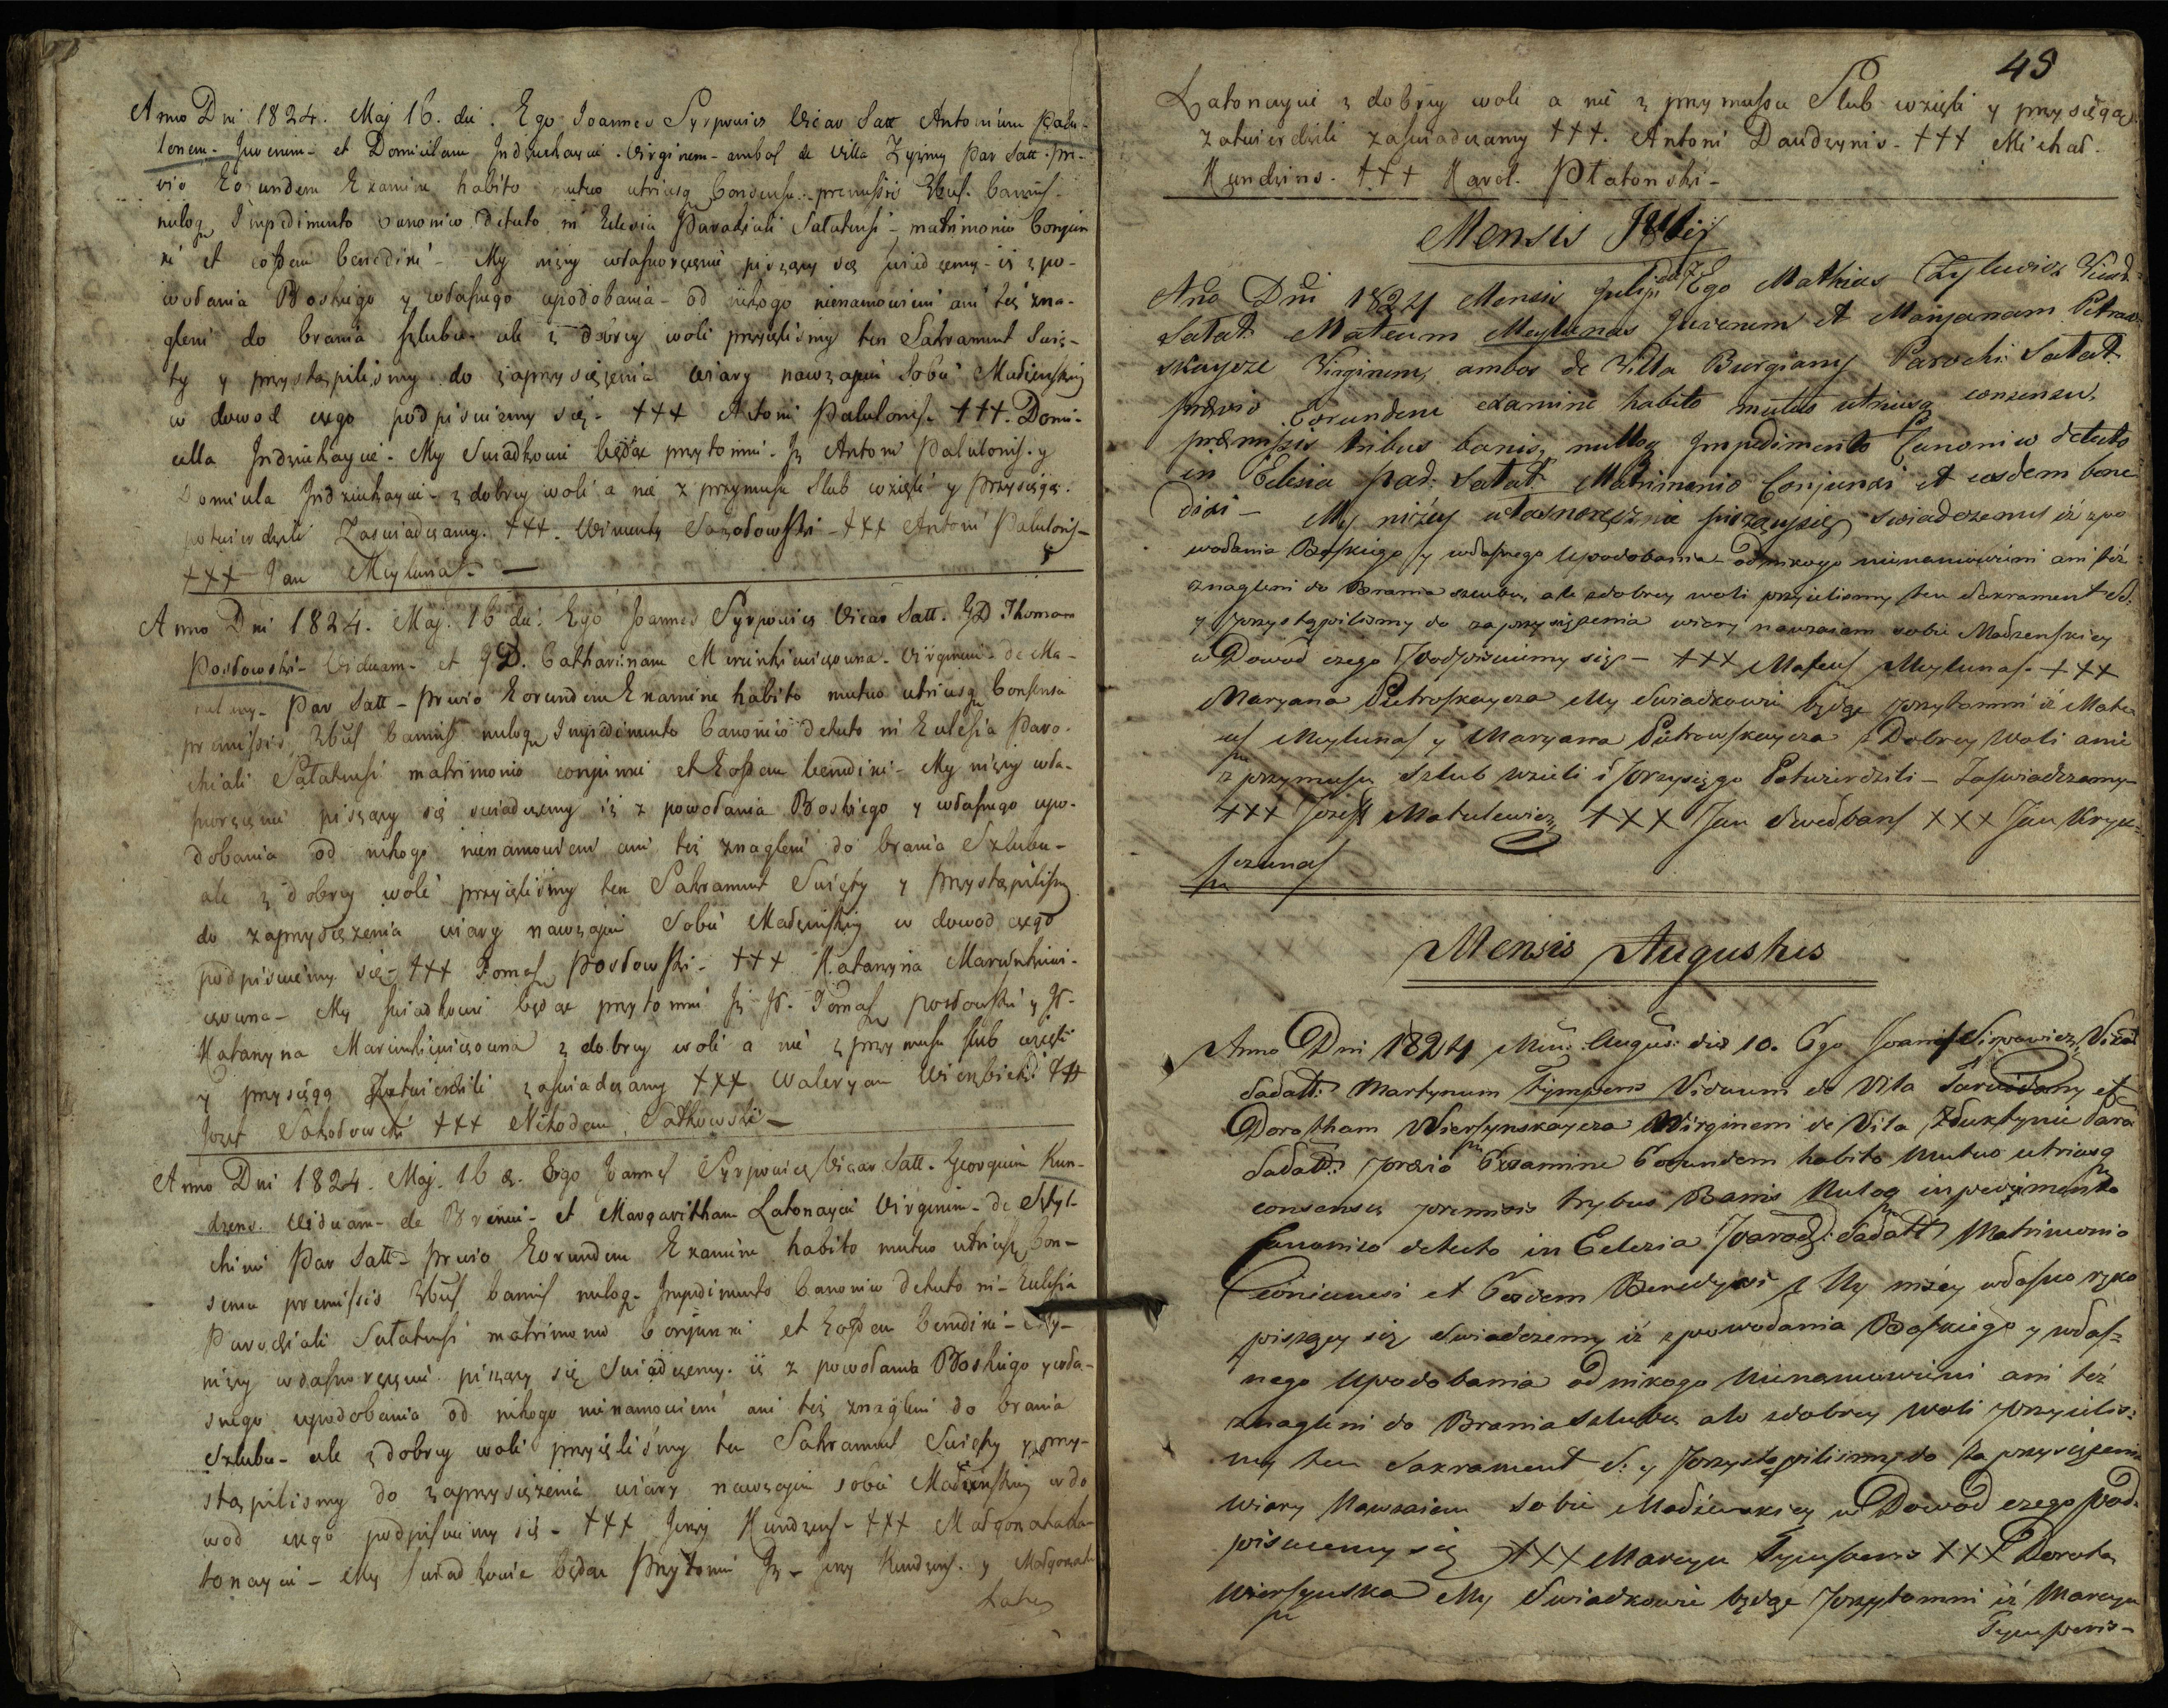 Anno Dni 1824. Maj 16. die. Ego Joannes Syrpowicz Vicar Satt Antonium Palu-
lonem. Juvenem. et Domicilam Jndziukaycie. Virginem. ambos de Villa Zyzmy Par Satt. pre-
vio Eorundem Examine habito mutuo utriusq Consensu. premissis 3bus. bannis.
nuloq Impedimento Canonico Detecto in Eclesia Parachiali Satatensi - matrimonio Conjun
xi et eosdem benedixi - My niżey własnoręcznie piszący się świadczemy - iż z po-
wołania Boskiego y własnego upodobania - od nikogo nienamowieni ani też zna-
gleni do brania szlubu - ale z dobrey woli przyięliśmy ten Sakrament Swię-
ty y przystąpiliśmy do zaprzysiężenia wiary nawzajem Sobie Małżeńskiey
w dowod czego podpisuiemy się - +++ Antoni Palulonis. +++. Domi-
cella Jndziukaycie. My Swiadkowie będąc przytomni. Jż Antoni Palulonis. y
Domicela Jndziukaycie - z dobrey woli a nie z przymusu Slub wzięli y Przysięgę.
potwierdzili Zaswiadczamy. +++. Wincenty Sokołowski - +++ Antoni Palulonis -
+++ Jan Meylunas. -
Anno Dni 1824. Maj. 16 die. Ego Joannes Syrpowicz Vicar Satt. GD. Thomam
Posłowski - Viduam. et GD. Catharinam Marcinkiewiczowna - Virginem - de
Par Satt - previo Eorundem Examine habito mutuo utriusq Consensu
premissis 3bus bannis nuloq Impedimento Canonico Detecto in Eclesia Paro-
chiali Satatensi matrimonio conjunxi et Eosdem benedixi - My niżey wła-
snoręcznie piszący się swiadczemy iż z powołania Boskiego y własnego upo-
dobania od nikogo nienamowieni ani też znagleni do brania Szlubu -
ale z dobrey woli przyięliśmy ten Sakrament Swięty y Przystąpiliśmy
do zaprzysiężenia wiary nawzajem Sobie Małżeńskiey w dowod czego
podpisuiemy się - +++ Tomasz Posłowski - +++ Katarzyna Marcinkiewi-
czowna - My swiadkowie będąc przytomni Jż Tomasz Posłowski y
Katarzyna Marcinkiewiczowna z dobrey woli a nie z przymusu slub wzięli
y przysięgą Zatwierdzili zaswiadczamy +++ Waleryan Wierzbicki +++
Jozef Sokołowski +++ Nikodem Satkowski -
Anno Dni 1824. Maj. 16 d. Ego Joannes Syrpowicz Vicar Satt. Georgium Kun-
dzens. Viduam - de Bremi - et Margaritham Latonaycie Virginem - de
Par Satt - previo Eorundem Examine habito mutuo utriusq Con-
sensu premissis 3bus bannis nuloq. Impedimento Canonico Detecto in - Eclesia
Parochiali Satatensi matrimonio Conjunxi et Eosdem benedixi - My -
niżey własnoręcznie piszący się Swiadczemy. iż z powołania Boskiego y wła-
snego upodobania od nikogo nienamowieni ani też znagleni do brania
Szlubu - ale z dobrey woli przyięliśmy ten Sakrament Swięty y przy-
stąpilismy do zaprzysiężenia wiary nawzajem sobie Małżeńskiey w do
wod czego podpisuiemy się - +++ Jerzy Kundzens - +++ Małgorzata La-
tonaycie - My swiadkowie będąc Przytomni Jż - Jerzy Kundzens. y Małgorzata
Lato
49
Latonaycie z dobrey woli a nie z przymusu Slub wzięli y przysięgą
zatwierdzili zaswiadczamy +++. Antoni Daudzynis - +++ Michał.
Kundzins. +++ Karol. Płatonski -
Mensis Julij
Ano Dni 1824 Mensis Julij die 7 Ego Mathias Czylewicz
Satat. Mateum Meylunas Juvenem et Marjanam Petrow-
skaycze Virginem, ambos de Villa Burgiany Parochi. Satat.
previo Eorundem examine habito mutuo utriusq consensu,
premissis tribus banis, nulloq Impedimento Canonico detecto
in Eclesia Par. Satat. Matrimonio Conjunxi et eosdem bene
dixi - My niżey własnoręcznie piszący się swiadczemy iż z po
wołania Boskiego y własnego Upodobania od nikogo nienamowieni ani też
znagleni do Brania szlubu, ale z dobrey woli przyielismy ten Sakrament St.
y przystąpilismy do zaprzysiężenia wiary nawzaiem sobie Małżenskiey
w Dowod czego Podpisuiemy się - +++ Mateusz Meylunas. +++
Maryana Pietroskaycza My Swiadkowie będąc przytomni iż Mate
usz Meylunas y Maryana Pietrowskaycza z Dobrey Woli a nie
z przymusu Szlub wzieli i Przysięgo Potwierdzili - Zaswiadczamy -
+++ Jozeff Matulewicz +++ Jan Swedbans +++ Jan Kryk-
sczunas
Mensis Augustus
Anno Dni 1824 Men: Augus: die 10. Ego Joanis Sirpowicz Vicar
Sadatt: Martynum Tympens Viduum de Vila et
Dorotham Wiersynskaycza Wirginem de Vila Zduktynie Para
Sadatt: previo Examine Eorundem habito Mutuo utriusq
consensu premisis trybus Banis Nuloq inpedimento
Canonico detecto in Eclezia Paroch: Sadatt Matrimonio
Coniunxi et Eosdem Benedyxi My niżey własno ręko
piszący się Swiadczemy iż z powołania Boskiego y włas=
nego Upodobania od nikogo Nienamowieni ani też
znagleni do Brania Szlubu ale z dobrey Woli przyielis=
my ten Sakrament S. y Przystąpilismy do Zaprzysiężenia
Wiary Nawzaiem Sobie Małżenskiey w Dowod czego Pod-
pisuiemy się +++ Marcyn Tympens +++ Dorota
Wiersynska My Swiadkowie będąc Przytomni iż Marcyn
Tympens -